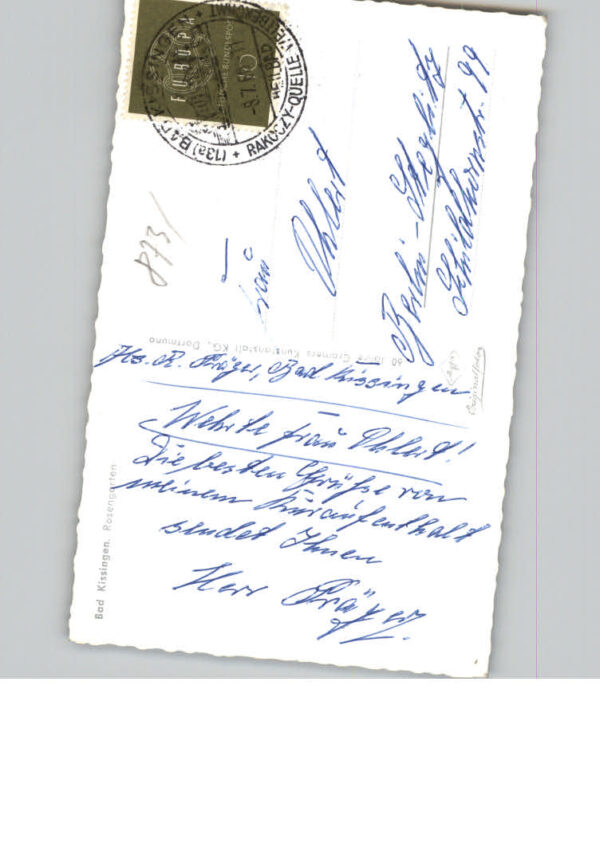 (13a) BAD KISSINGEN
RAKOCZY-QUELLE
HEILBAD
EUROPA
DEUTSCHE BUNDESPOST
873/
Frau
Ohlert
Berlin-Steglitz
Schildhornstr. 99
60 Jahre Cramers Kunstanstalt KG., Dortmund
Originalfoto
Abs. R. Präger, Bad Kissingen
Wehrte Frau Ohlert!
Die besten Grüße von
meinem Kuraufenthalt
sendet Ihnen
Herr Präger
Bad Kissingen, Rosengarten